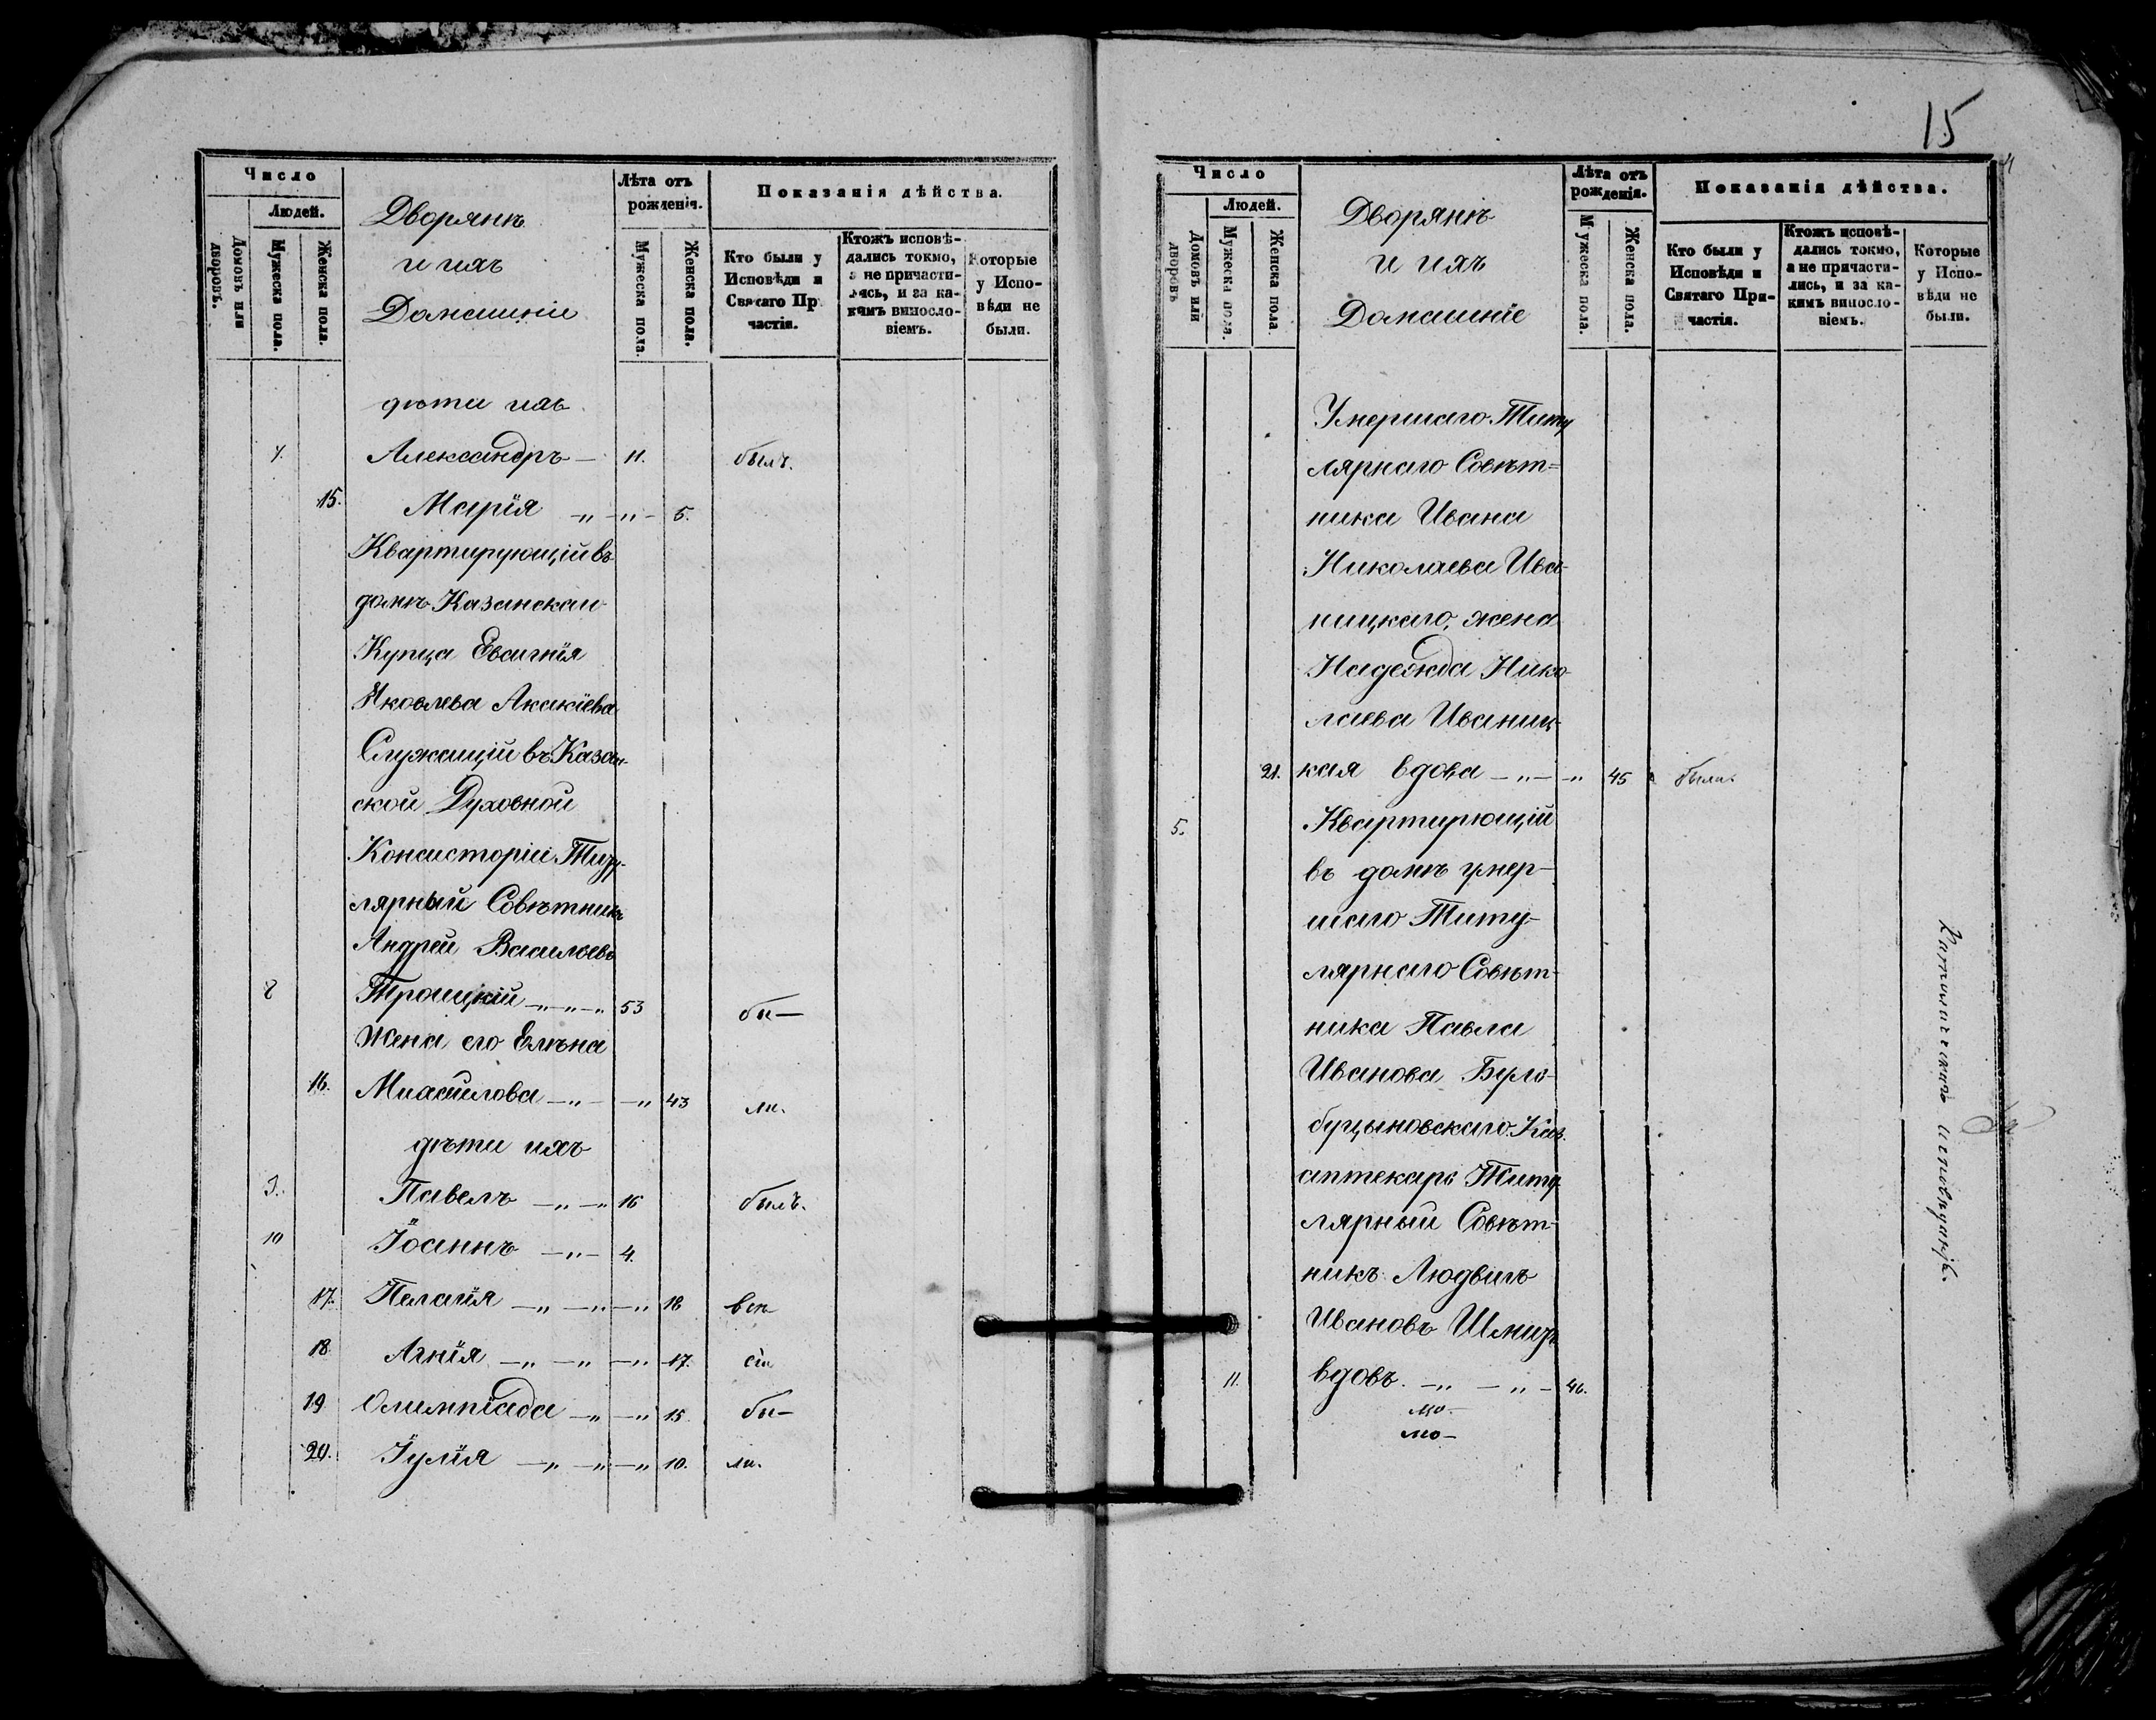 Число
Людей.
Домовъ или дворовъ.
Мужеска пола.
Женска пола.
Дворянъ
и ихъ
Домашніе
Лѣта отъ рожденія.
Мужеска пола.
Женска пола.
Показанія дѣйства.
Кто были у Исповѣди и Святаго Пр частія.
Ктожъ исповѣ-
дались токмо,
а не причасти-
лись, и за ка-
кимъ винослo-
віемъ.
Которые
у Испо-
вѣди не
были.
дѣти ихъ
7. Александръ — 11. былъ.
15. Марія „ „ 5.
Квартирующій въ
домѣ Казанскаго
Купца Евсигнія
Яковлева Акакіева
Служащій въ Казан-
ской Духовной
Консисторіи Титу-
лярный Совѣтникъ
Андрей Васильевъ
8 Троицкій „ „ 53 бы—
Жена его Елѣна
16. Михайлова „ „ 43 ли.
дѣти ихъ
9. Павелъ „ „ 16 былъ.
10 Іоаннъ „ 4.
17. Пелагія „ „ „ 18 всѣ
18 Агнія „ „ „ 17. сіи
19 Олимпіада „ „ 15. бы—
20. Іулія „ „ „ 10. ли.
15
Число
Людей.
Домовъ или дворовъ
Мужеска пола.
Женска пола.
Дворянъ
и ихъ
Домашніе
Лѣта отъ рожденія.
Мужеска пола.
Женска пола.
Показанія дѣйства.
Кто были у
Исповѣди и
Святаго При-
частія.
Ктожъ исповѣ-
дались токмо,
а не причасти-
лись, и за ка-
кимъ винослo-
віемъ.
Которые
у Испо-
вѣди не
были.
Умершаго Титу
лярнаго Совѣт=
ника Ивана
Николаева Ива-
ницкаго, жена
Надежда Нико
лаева Иваниц-
21. кая вдова „ „ 45 была.
5. Квартирющій
въ домѣ умер-
шаго Титу-
лярнаго Совѣт-
ника Павла
Иванова Було-
буцыновскаго Каз.
аптекарь Титу
лярный Совѣт-
никъ Людвигъ
Ивановъ Шмидъ
11. вдовъ. „ „ 46.
мо-
Католическаго исповѣданія.